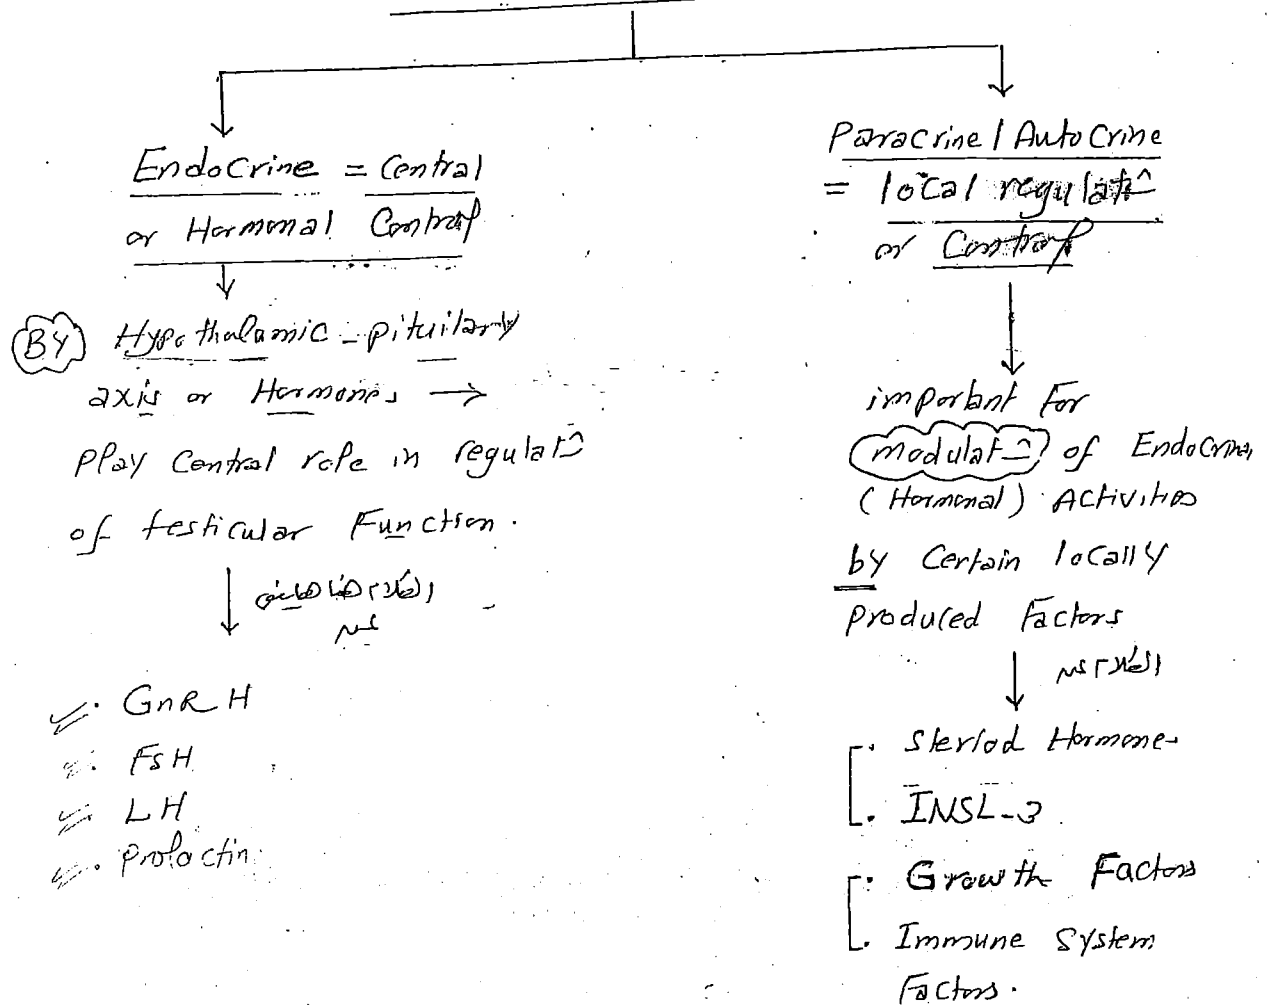 Endocrine = Central
or Hormonal Control
BY Hypothalamic-pituilary
axis or Hormones →
Play Central role in regulat
of testicular Function.
الكلام هنا هايبقى
عن
GnRH
FSH
LH
Prolactin
Paracrine / Autocrine
= local regulat
or Control
important For
modulat of Endocrine
(Hormonal) Activities
by Certain locally
Produced Factors
الكلام عن
Steriod Hormones
INSL-3
Growth Factors
Immune System
Factors.